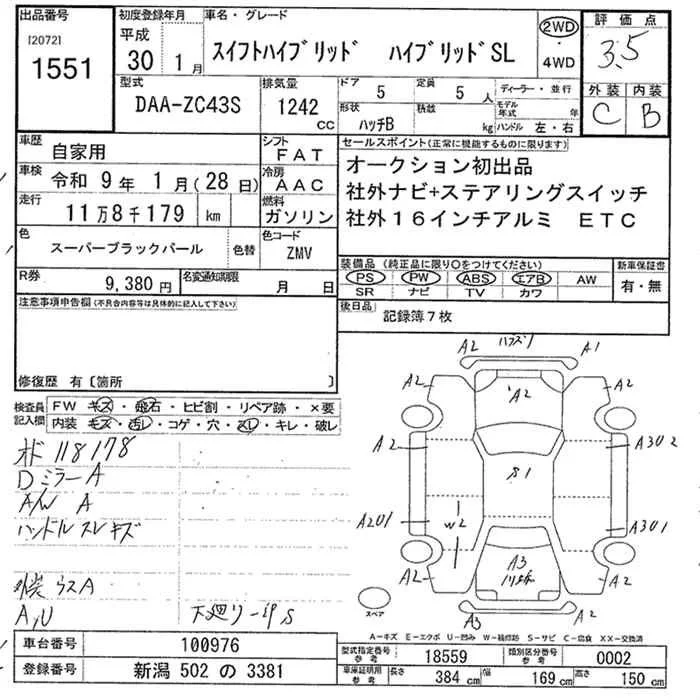 出品番号
[2072]
1551
初度登録年月
平成
30 1月
車名・グレード
スイフトハイブリッド ハイブリッドSL
2WD
・
4WD
評価点
3.5
外装 内装
C B
型式
DAA-ZC43S
排気量
1242
CC
ドア
5
定員
5 人
形状
ハッチB
積載
kg
ディーラー・並行
モデル年式 年
ハンドル 左・右
車歴
自家用
シフト
FAT
車検
令和 9年 1月(28日)
冷房
AAC
走行
11万8千179 km
燃料
ガソリン
色
スーパーブラックパール
色替
色コード
ZMV
R券
9,380円
名変通知期限
月 日
セールスポイント(正常に機能するものに限ります)
オークション初出品
社外ナビ+ステアリングスイッチ
社外16インチアルミ ETC
装備品 (純正品に限り○をつけてください)
PS PW ABS エアB AW
SR ナビ TV カワ
新車保証書
有・無
後日品
記録簿7枚
注意事項申告欄(不具合内容等は具体的に記入して下さい)
修復歴 有〔箇所 〕
検査員
記入欄
FW キズ・飛石・ヒビ割・リペア跡・×要
内装・キズ・汚レ・コゲ・穴・スレ・キレ・破レ
オド 118178
Dミラー A
A/W A
ハンドル スレ キズ
A,U
下廻り一部S
A2
A1
A2
A2
A2
A2
A302
S1
A201
W2
A301
A3
A2
A2
A3
A2
スペア
A-キズ E-エクボ U-凹み W-補修跡 S-サビ C-腐食 XX-交換済
車台番号
100976
登録番号
新潟 502 の 3381
型式指定番号
参考
18559
類別区分番号
参考
0002
車体証明用
参考
長さ
384 cm
幅
169 cm
高さ
150 cm